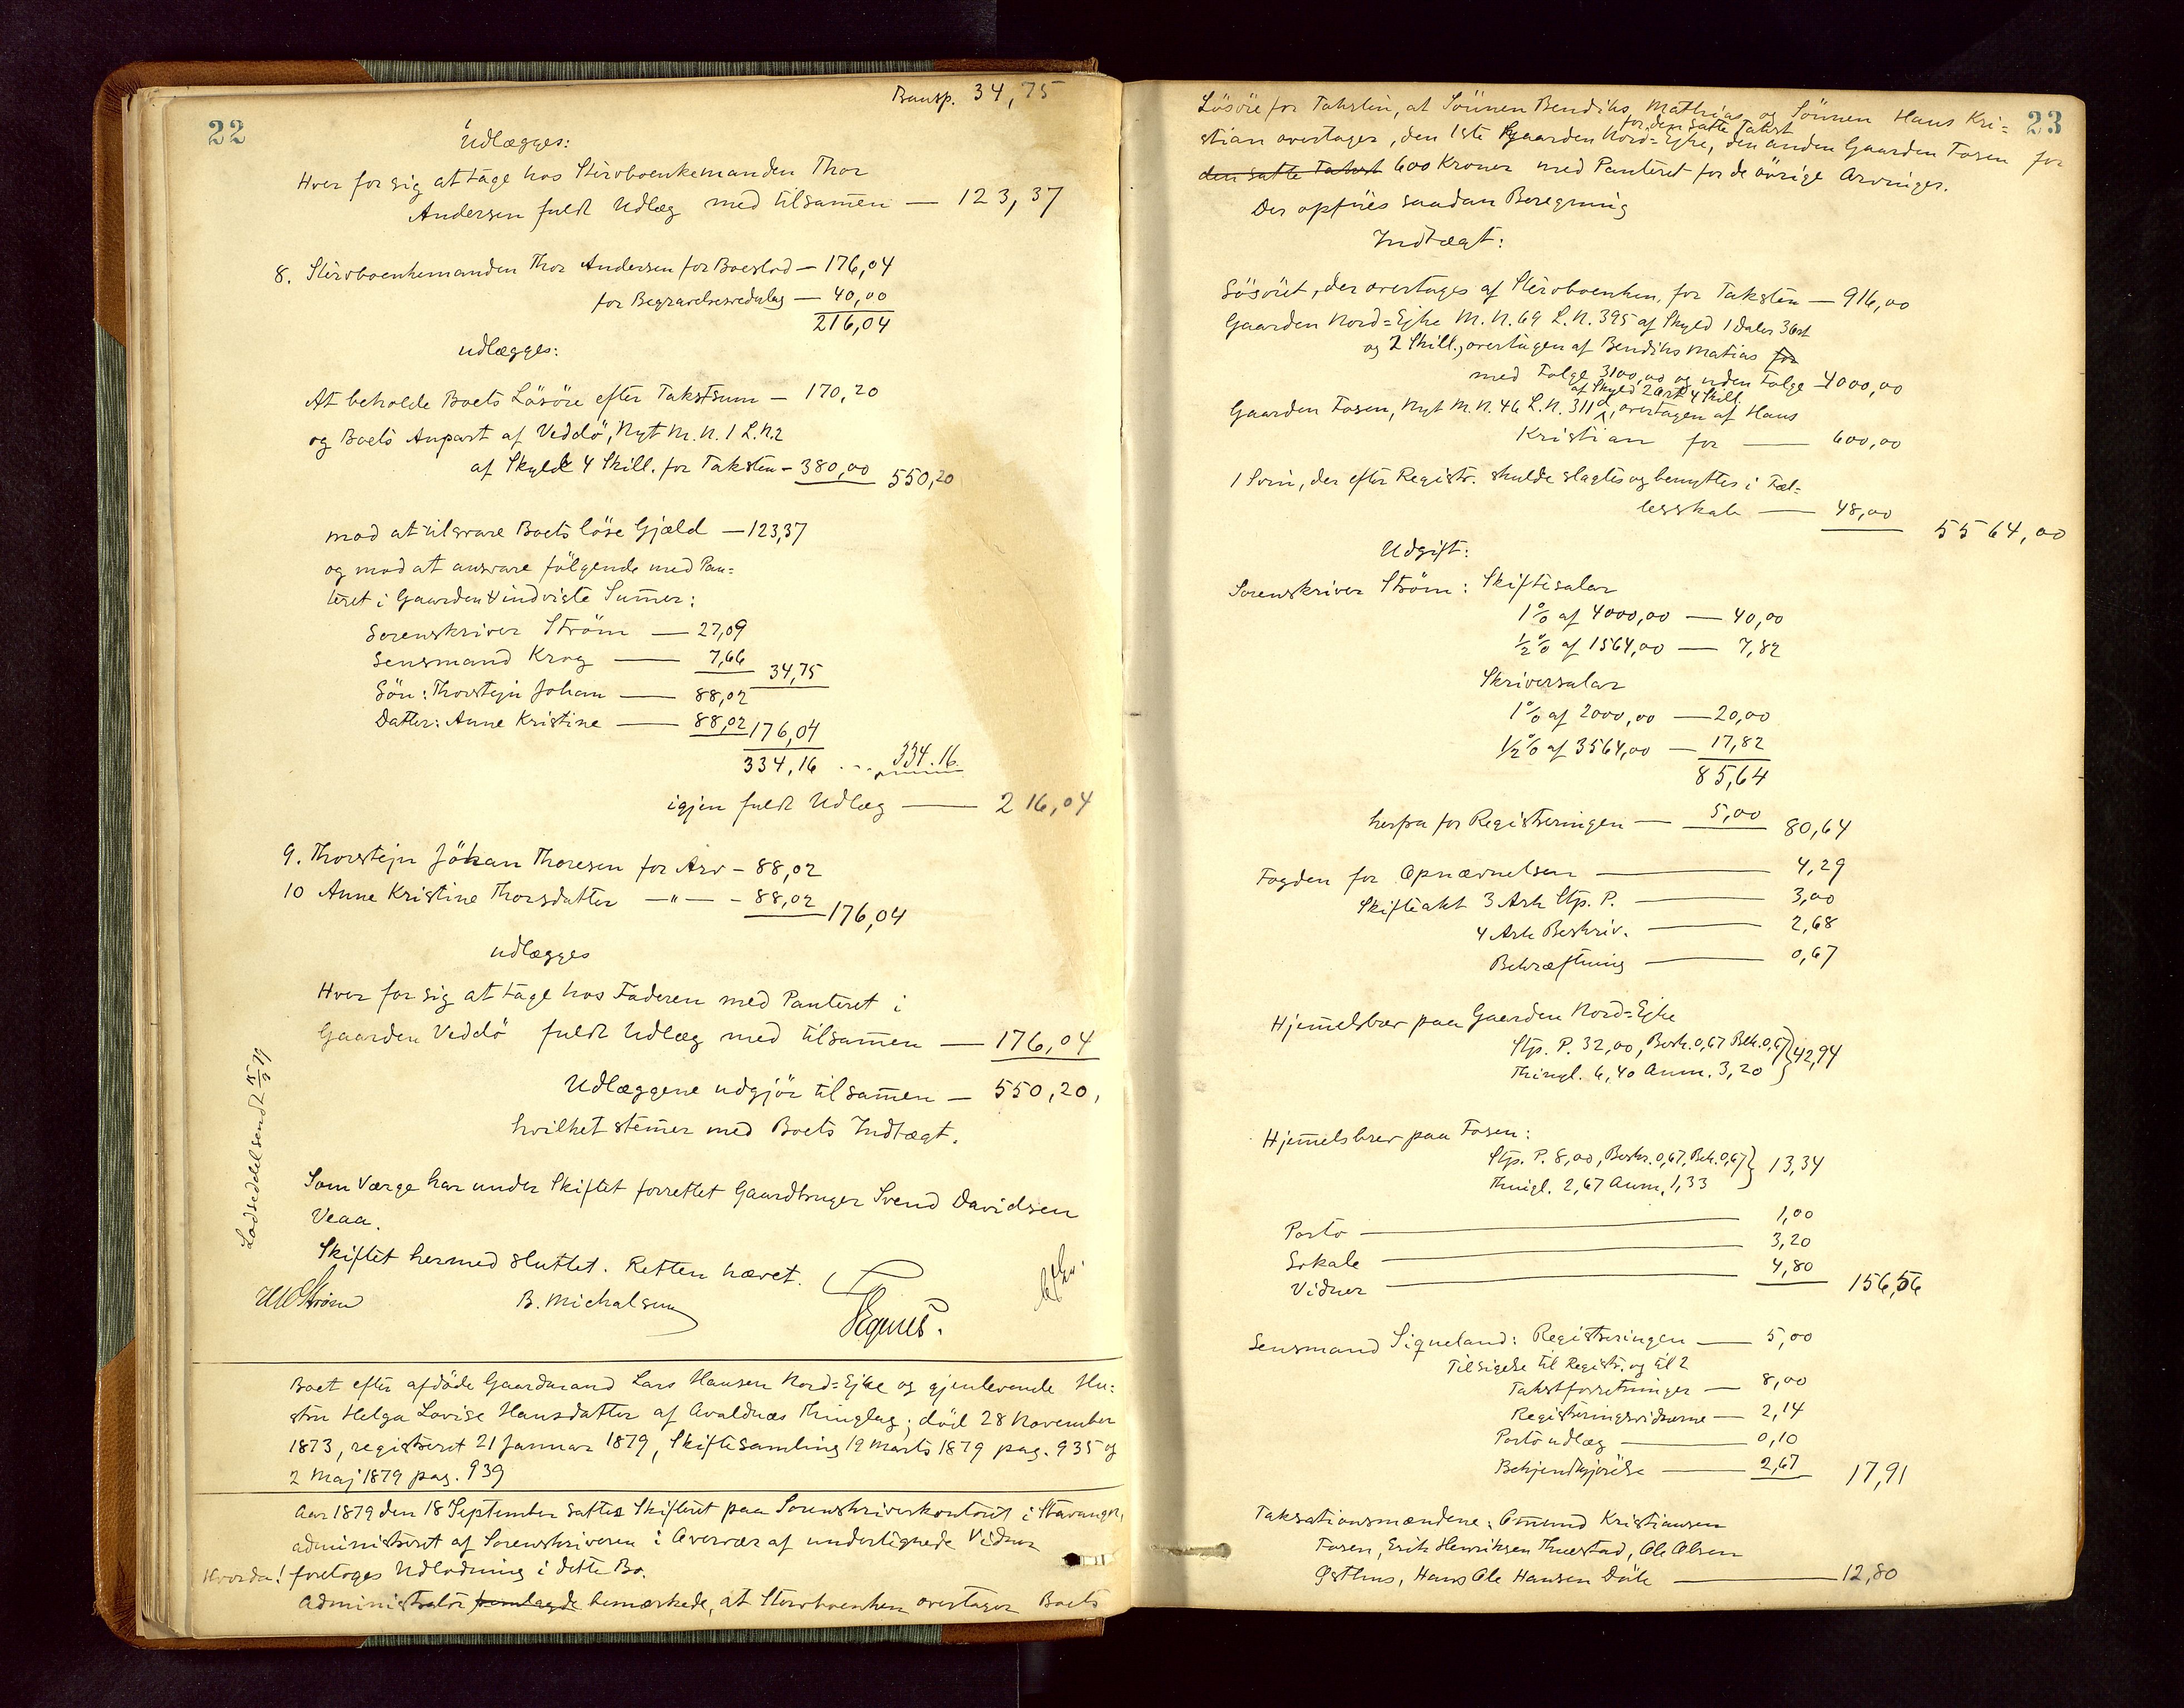 22
Transp. 34,75
Udlægges:
Hver for sig at tage hos Stervboenkemanden Thor
Andersen fuldt Udlæg med tilsamen — 123,37
8. Stervboenkemanden Thor Andersen for Boeslod — 176,04
for Begravelsesudlæg — 40,00
216,04
udlægges:
At beholde Boets Lösöre efter Takstsum — 170,20
og Boets Anpart af Veddö, Nyt M.N. 1 L.N. 2
af Skyld 4 Skill. for Taksten — 380,00 550,20
mod at tilsvare Boets löse Gjæld — 123,37
og mod at ansvare følgende med Pan=
teret i Gaarden indviste Sumer:
Sorenskriver Ström — 27,09
Lensmand Krog — 7,66 34,75
Sön: Thorstejn Johan — 88,02
Datter: Anne Kristine — 88,02 176,04
334,16 ... 334.16.
igjen fuldt Udlæg — 216,04
9. Thorstejn Johan Thoresen for Arv — 88,02
10 Anne Kristine Thorsdatter — " — - 88,02 176,04
udlægges
Hver for sig at tage hos Faderen med Panteret i
Gaarden Veddö fuldt Udlæg med tilsamen — 176,04
Udlæggene udgjör tilsamen — 550,20,
hvilket stemer med Boets Indtægt.
Lodseddel sendt 15/9 79
Som Værge har under Skiftet forrettet Gaardbruger Svend Davidsen
Veaa.
Skiftet hermed sluttet. Retten hævet.
Ström B. Michalsen
Boet efter afdöde Gaardmand Lars Hansen Nord=Ejke og gjenlevende Hu=
stru Helga Lovise Hansdatter af Avaldnæs Thinglag; död 28 November
1873, registreret 21 Januar 1879, Skiftesamling 19 Marts 1879 pag. 935 og
2 Maj 1879 pag. 939
Aar 1879 den 18 September sattes Skifteret paa Sorenskriverkontoret i Stavanger,
administreret af Sorenskriveren i Overvær af undertegnede Vidner
Hvorda! foretoges Udlodning i dette Bo.
Administrator fremlagde bemærkede, at Stervboenken overtager Boets
23
Lösöre for Taksten, at Sönnen Bendiks Mathias og Sönnen Hans Kri=
for den satte Takst
stian overtager, den 1ste Gaarden Nord=Ejke, den anden Gaarden Fosen for
den satte Takst 600 Kroner med Panteret for de övrige Arvinger.
Der opföres saadan Beregning
Indtægt:
Lösöret, der overtages af Stervboenken, for Taksten — 916,00
Gaarden Nord=Ejke M.N. 69 L.N. 395 af Skyld 1 Daler 3 Ort
og 2 Skill., overtagen af Bendiks Matias for
med Folge 3100,00 og uden Folge 4000,00
af Skyld 2 Ort 4 Skill.
Gaarden Fosen, Nyt M.N. 46 L.N. 311d, overtagen af Hans
Kristian for — 600,00
1 Svin, der efter Registr. skulde slagtes og benyttes i Fæl=
lesskab — 48,00 5564,00
Udgift:
Sorenskriver Ström: Skiftesalar
1% af 4000,00 — 40,00
½% af 1564,00 — 7,82
Skriversalar
1% af 2000,00 — 20,00
½% af 3564,00 — 17,82
85,64
herfra for Registreringen — 5,00 80,64
Fogden for Opnævnelsen — 4,29
Skifteakt 3 Ark Stp. P. — 3,00
4 Ark Beskriv. — 2,68
Bekræftning — 0,67
Hjemelsbrev paa Gaarden Nord=Ejke
Stp. P. 32,00, Besk. 0,67 Bek. 0,67 } 42,94
Thingl. 6,40 Anm. 3,20
Hjemelsbrev paa Fosen:
Stp. P. 8,00, Beskr. 0,67, Bek. 0,67 } 13,34
Thingl. 2,67 Anm. 1,33
Porto — 1,00
Lokale — 3,20
Vidner — 4,80 156,56
Lensmand Siqueland: Registreringen — 5,00
Tilsigelse til Registr. og til 2
Takstforretninger — 8,00
Registreringsvidnerne — 2,14
Porto udlæg — 0,10
Bekjendtgjörelse — 2,67 17,91
Taksationsmændene: Omund Kristiansen
Fosen, Erik Henriksen Thuestad, Ole Olsen
Østhus, Hans Ole Hansen Döle — 12,80